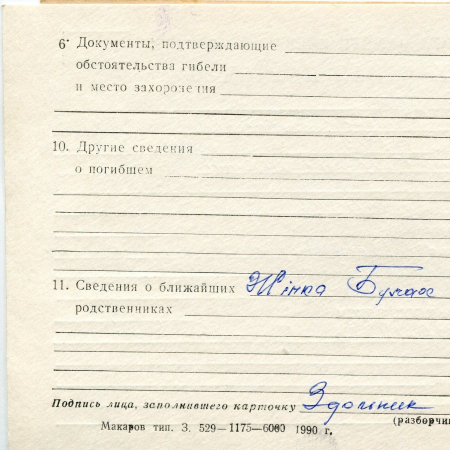 6. Документы, подтверждающие
обстоятельства гибели
и место захоронения
10. Другие сведения
о погибшем
11. Сведения о ближайших Жінка
родственниках
Подпись лица, заполнившего карточку
(разборчи
Макаров тип. З. 529—1175—6000 1990 г.